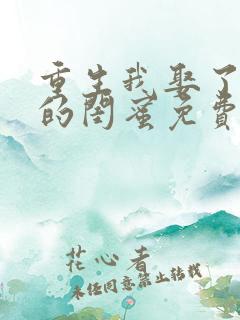 重生我娶了
的闺蜜免費
花心者
未经同意禁止转载